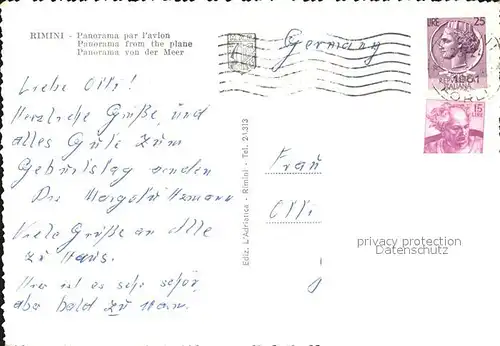 RIMINI - Panorama par l'avion
Panorama from the plane
Panorama von der Meer
Germany
LIRE 25
1961
ITALIANA
15
LIRE
Liebe Otti!
Herzliche Grüße und
alles Gute zum
Geburtstag senden
Viele Grüße an alle
zu Haus.
Hier ist es sehr schön
aber bald zu Haus.
Ediz. L'Adriatica - Rimini - Tel. 21.313
Frau
Otti
privacy protection
Datenschutz